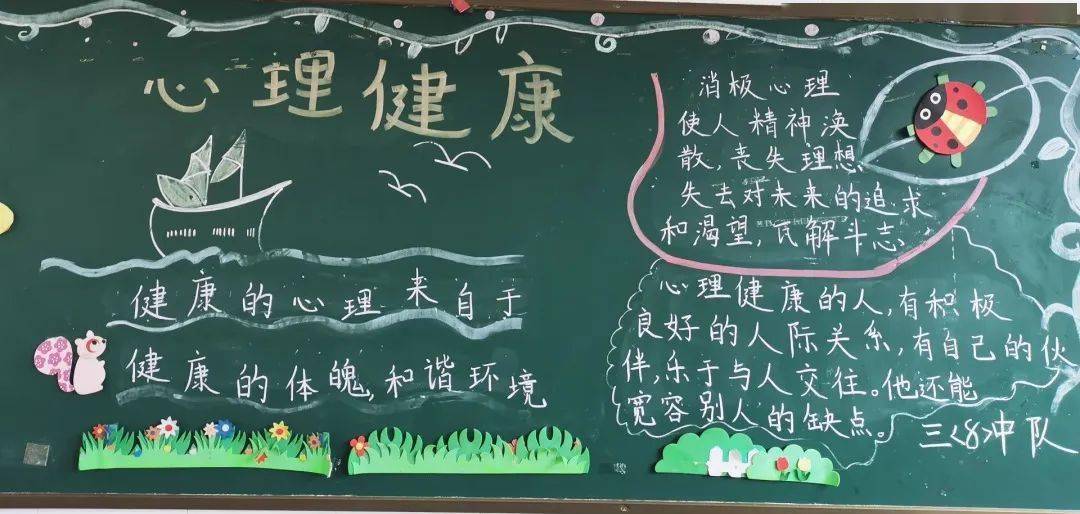 心理健康
健康的心理来自于
健康的体魄,和谐环境
消极心理
使人精神涣
散,丧失理想
失去对未来的追求
和渴望,瓦解斗志
心理健康的人,有积极
良好的人际关系,有自己的伙
伴,乐于与人交往。他还能
宽容别人的缺点。
三<8>中队